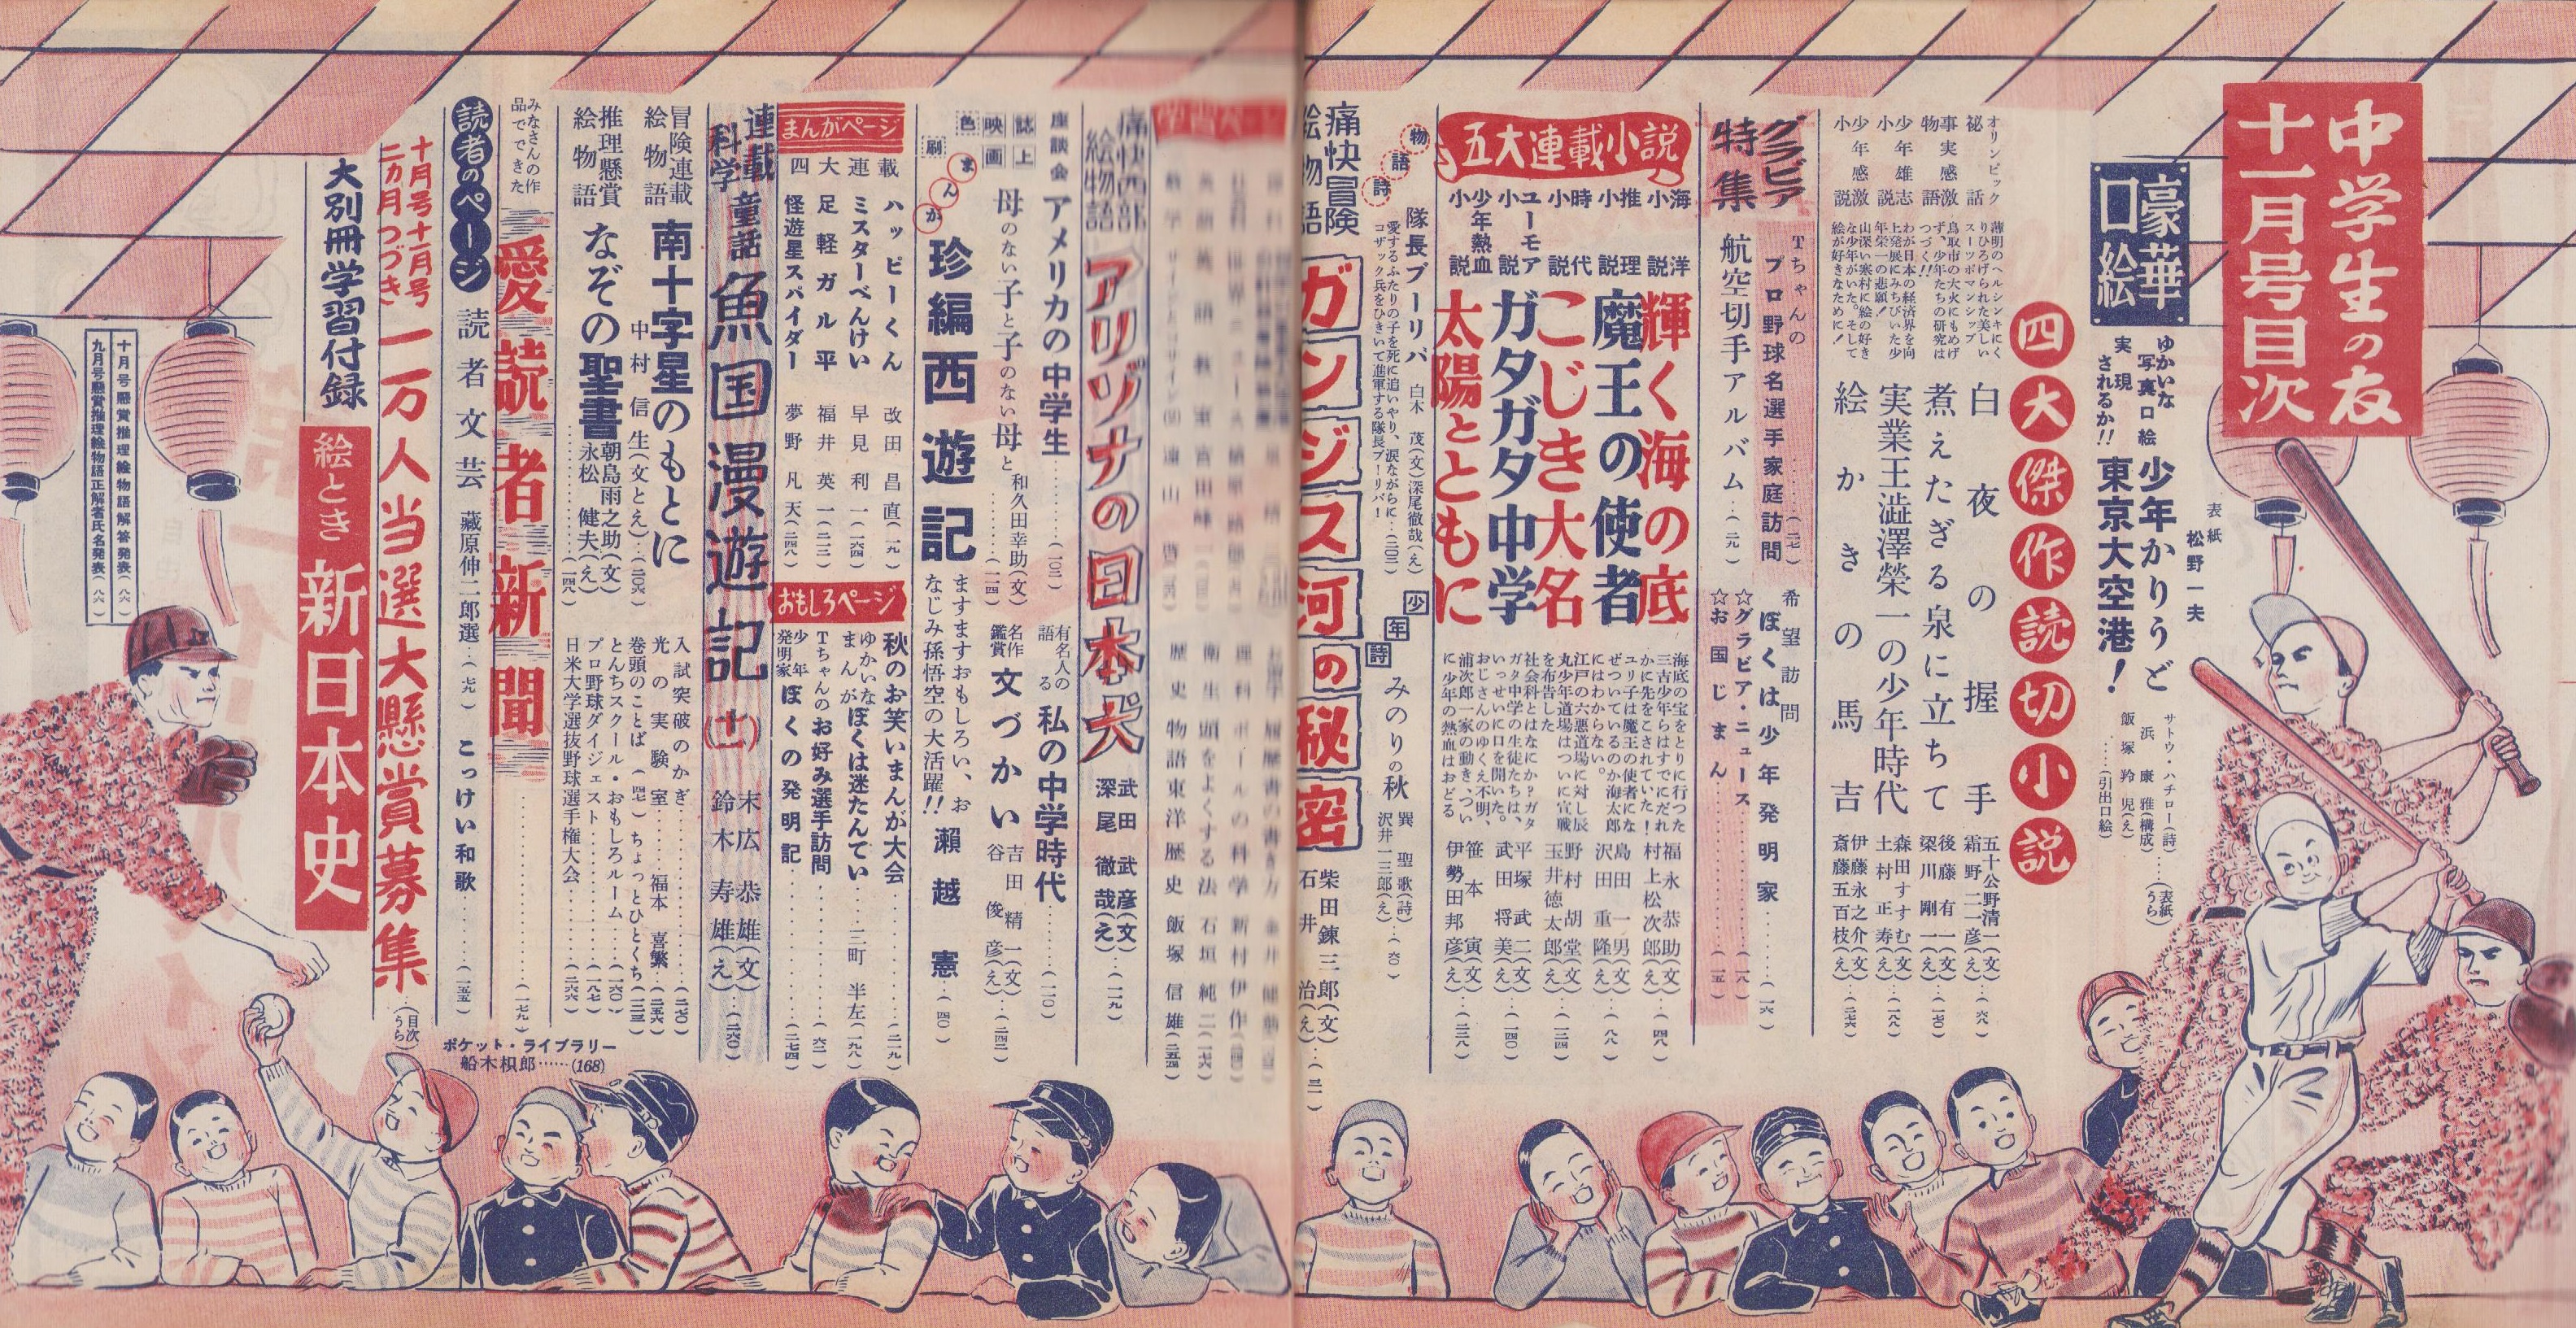 中学生の友
十一月号目次
表紙 松野一夫
豪華口絵
ゆかいな写真口絵 少年かりうど
サトウ・ハチロー(詩)
浜 康雅(構成)……(表紙うら)
実現されるか!! 東京大空港!
飯塚羚児(え)
……(引出口絵)
四大傑作読切小説
オリンピック秘話
薄明のヘルシンキにくりひろげられた美しいスーツポマンシップ
白夜の握手
五十公野清一(文)
霜野二一彦(え)…(六八)
事実感激物語
鳥取市の大火にもめげず、少年たちの研究はつづく!!
煮えたぎる泉に立ちて
後藤有一(文)
梁川剛一(え)…(一七〇)
少年雄志小説
わが日本の経済界を向上発展にみちびいた少年栄一の悲願!
実業王澁澤榮一の少年時代
森田すすむ(文)
土村正寿(え)…(一八八)
少年感激小説
山深い寒村に絵の好きな少年がいた。そして絵が好きなために!
絵かきの馬吉
伊藤永之介(文)
斎藤五百枝(え)…(二七六)
グラビア特集
Tちゃんのプロ野球名選手家庭訪問……(二七)
航空切手アルバム…(二九)
希望訪問 ぼくは少年発明家……(一六)
☆グラビア・ニュース……(一八)
☆お国じまん……(一五)
五大連載小説
海洋小説 輝く海の底
海底の宝をとりに行った三吉少年らはすでにだれかに先をこされていた!
福永恭助(文)
村上松次郎(え)…(四八)
推理小説 魔王の使者
ユリ子は魔王の使者になぜついているのか海太郎にはわからない。
島田一男(文)
沢田重隆(え)…(八八)
時代小説 こじき大名
江戸の六悪道場に対し辰丸少年道場はついに宣戦を布告した
野村胡堂(文)
玉井徳太郎(え)…(一三四)
ユーモア小説 ガタガタ中学
社会科とはなにか?ガタガタ中学の生徒たちは、いっせいに口を開いた。
平塚武二(文)
武田将美(え)…(一四〇)
少年熱血小説 太陽とともに
おじさんのゆくえ不明、浦次郎一家の動き、ついに少年の熱血はおどる
笹本寅(文)
伊勢田邦彦(え)…(二三八)
物語詩 隊長ブーリバ
白木茂(文)深尾徹哉(え)
愛するふたりの子を死に追いやり、涙ながらにコザック兵をひきいて進軍する隊長ブーリバ!
…(二〇二)
少年詩 みのりの秋
巽聖歌(詩)
沢井一三郎(え)…(六〇)
痛快冒険絵物語 ガンジス河の秘密
柴田錬三郎(文)
石井治(え)…(三一)
歴史物語東洋歴史 飯塚信雄(二五四)
衛生 頭をよくする法 石垣純二(一七六)
理科 ボールの科学 新村伊作
履歴書の書き方
痛快西部絵物語 アリゾナの日本犬
武田武彦(文)
深尾徹哉(え)…(一一九)
座談会 アメリカの中学生……(一〇二)
有名人の語る 私の中学時代……(一一〇)
誌上映画 母のない子と子のない母と
和久田幸助(文)……(一一四)
名作鑑賞 文づかい
吉田精一(文)
谷俊彦(え)…(二四二)
色刷まんが 珍編西遊記
ますますおもしろい、おなじみ孫悟空の大活躍!!
瀬越憲…(四〇)
まんがページ
四大連載
ハッピーくん 改田昌直(一九)
ミスターべんけい 早見利一(一六四)
足軽ガル平 福井英一(二一三)
怪遊星スパイダー 夢野凡天(二四八)
おもしろページ
秋のお笑いまんが大会……(二一九)
ゆかいなまんが ぼくは迷たんてい…三町半左(一九八)
Tちゃんのお好み選手訪問……(六二)
少年発明家 ぼくの発明記……(二七四)
連載科学童話 魚国漫遊記(十一)
末広恭雄(文)
鈴木寿雄(え)…(二六〇)
冒険連載絵物語 南十字星のもとに
中村信生(文とえ)…(二〇六)
推理懸賞絵物語 なぞの聖書
朝島雨之助(文)
永松健夫(え)
……(一四八)
入試突破のかぎ……(二七〇)
光の実験室……福本喜繁(二五六)
巻頭のことば(四七) ちょっとひとくち(一三三)
とんちスクール・おもしろルーム……(一六〇)
プロ野球ダイジェスト……(一八七)
日米大学選抜野球選手権大会……(二六六)
みなさんの作品でできた 愛読者新聞……(一七九)
読者のページ 読者文芸 蔵原伸二郎選…(七九) こっけい和歌……(一五五)
ポケット・ライブラリー
船木枳郎……(168)
十月号十一月号二カ月つづき 一万人当選大懸賞募集…(目次うら)
大別冊学習付録 絵とき新日本史
十月号懸賞推理絵物語解答発表(八六)
九月号懸賞推理絵物語正解者氏名発表(八六)